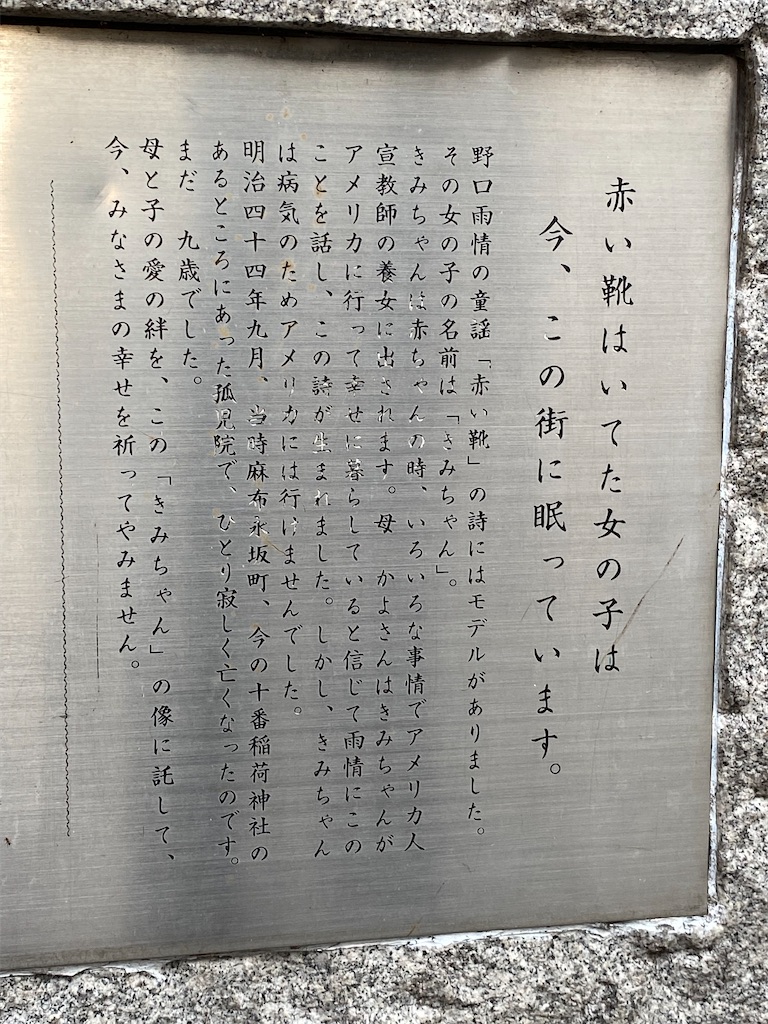 赤い靴はいてた女の子は
今、この街に眠っています。
野口雨情の童謡「赤い靴」の詩にはモデルがありました。
その女の子の名前は「きみちゃん」。
きみちゃんは赤ちゃんの時、いろいろな事情でアメリカ人
宣教師の養女に出されます。母 かよさんはきみちゃんが
アメリカに行って幸せに暮らしていると信じて雨情にこの
ことを話し、この詩が生まれました。しかし、きみちゃん
は病気のためアメリカには行けませんでした。
明治四十四年九月、当時麻布永坂町、今の十番稲荷神社の
あるところにあった孤児院で、ひとり寂しく亡くなったのです。
まだ 九歳でした。
母と子の愛の絆を、この「きみちゃん」の像に託して、
今、みなさまの幸せを祈ってやみません。